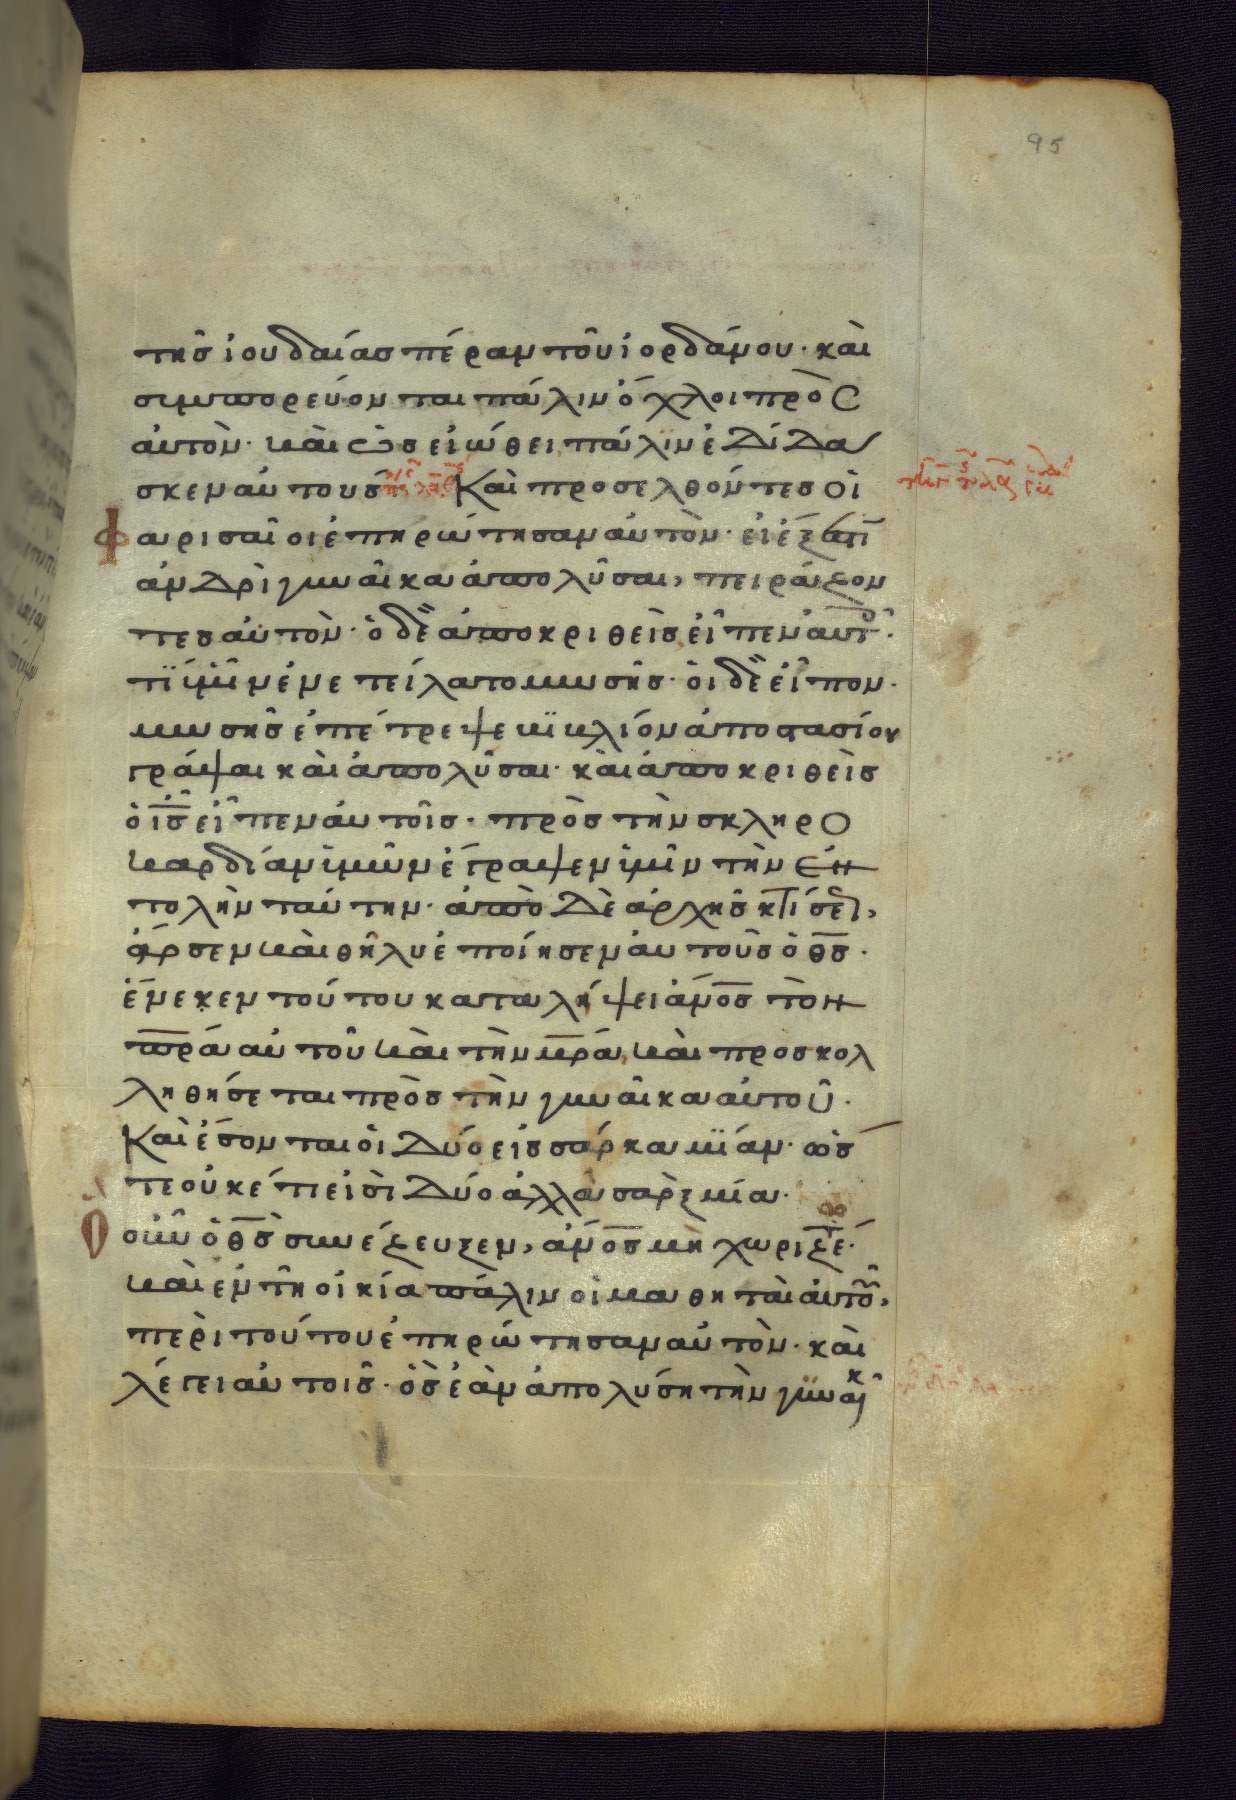 95
της ἰουδαίας πέραν τοῦ ἰορδάνου· καὶ
συμπορεύονται πάλιν ὄχλοι πρὸς
αὐτὸν· καὶ ὡς εἰώθει πάλϊν ἐδίδα
σκεν αὐτους Καὶ προσελθόντες οἱ
φαρισαῖοι ἐπηρώτησαν αὐτὸν· εἰ ἔξεστιν
ἀνδρὶ γυναῖκα ἀπολῦσαι, πειράζον
τες αὐτὸν· ὁ δὲ ἀποκριθεὶς εἶπεν αὐτοῖς·
τί ὑμῖν ἐνετείλατο μωσῆς· οἱ δὲ εἶπον·
μωσῆς ἐπέτρεψε βϊβλίον ἀποστασίου
γράψαι καὶ ἀπολῦσαι· καὶ ἀποκριθεὶς
ὁ ι̅ς̅ εἶπεν αὐτοῖς· πρὸς τὴν σκληρο
καρδίαν ὑμῶν ἔγραψεν ὑμῖν τὴν ἐν
τολὴν ταύτην· ἀπὸ δὲ ἀρχῆς κτίσεως,
ἄρσεν καὶ θῆλυ ἐποίησεν αὐτοῦς ὁ θ̅ς̅·
ἕνεκεν τούτου καταλήψει ἄν̅ο̅ς̅ τὸν
π̅ρ̅α̅ αὐτοῦ καὶ τὴν μ̅ρ̅α̅, καὶ προσκολ
ληθήσεται πρὸς τὴν γυναῖκα αὐτοῦ·
Καὶ ἔσονται οἱ δύο εἰς σάρκα μϊάν· ὡσ
τε οὐκέτι εἰσὶ δύο ἀλλὰ σὰρξ μία·
Ὃ οὖν ὁ θ̅ς̅ συνέζευξεν, ἄν̅ο̅ς̅ μὴ χωριζέτω·
καὶ ἐν τῆ οἰκία πάλιν οἱ μαθηταὶ αὐτοῦ,
περὶ τούτου ἐπηρώτησαν αὐτὸν· καὶ
λέγει αὐτοις· ὃς ἐὰν ἀπολύση τὴν γυναῖκ